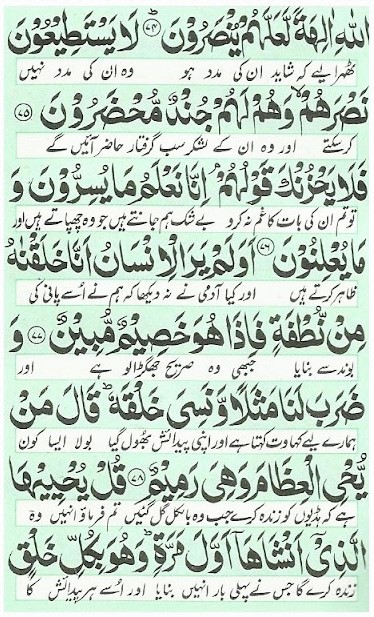 اللّٰهِ اٰلِهَةً لَّعَلَّهُمْ يُنْصَرُوْنَ ﴿۷۴﴾ لَا يَسْتَطِيْعُوْنَ
ٹھہرا لیے کہ شاید ان کی مدد ہو وہ ان کی مدد نہیں
نَصْرَهُمْ ۙ وَهُمْ لَهُمْ جُنْدٌ مُّحْضَرُوْنَ ﴿۷۵﴾
کرسکتے اور وہ ان کے لشکر سب گرفتار حاضر آئیں گے
فَلَا يَحْزُنْكَ قَوْلُهُمْ ۘ اِنَّا نَعْلَمُ مَا يُسِرُّوْنَ وَ
تو تم ان کی بات کا غم نہ کرو بے شک ہم جانتے ہیں جو وہ چھپاتے ہیں اور
مَا يُعْلِنُوْنَ ﴿۷۶﴾ اَوَلَمْ يَرَ الْاِنْسَانُ اَنَّا خَلَقْنٰهُ
ظاہر کرتے ہیں اور کیا آدمی نے نہ دیکھا کہ ہم نے اُسے پانی کی
مِنْ نُّطْفَةٍ فَاِذَا هُوَ خَصِيْمٌ مُّبِيْنٌ ﴿۷۷﴾ وَ
بوند سے بنایا جبھی وہ صریح جھگڑالو ہے اور
ضَرَبَ لَنَا مَثَلًا وَّنَسِيَ خَلْقَهٗ ؕ قَالَ مَنْ
ہمارے لیے کہاوت کہتا ہے اور اپنی پیدائش بھول گیا بولا ایسا کون
يُّحْيِ الْعِظَامَ وَهِيَ رَمِيْمٌ ﴿۷۸﴾ قُلْ يُحْيِيْهَا
ہے کہ ہڈیوں کو زندہ کرے جب وہ بالکل گل گئیں تم فرماؤ انہیں وہ
الَّذِيْۤ اَنْشَاَهَاۤ اَوَّلَ مَرَّةٍ ؕ وَهُوَ بِكُلِّ خَلْقٍ
زندہ کرے گا جس نے پہلی بار انہیں بنایا اور اُسے ہر پیدائش کا